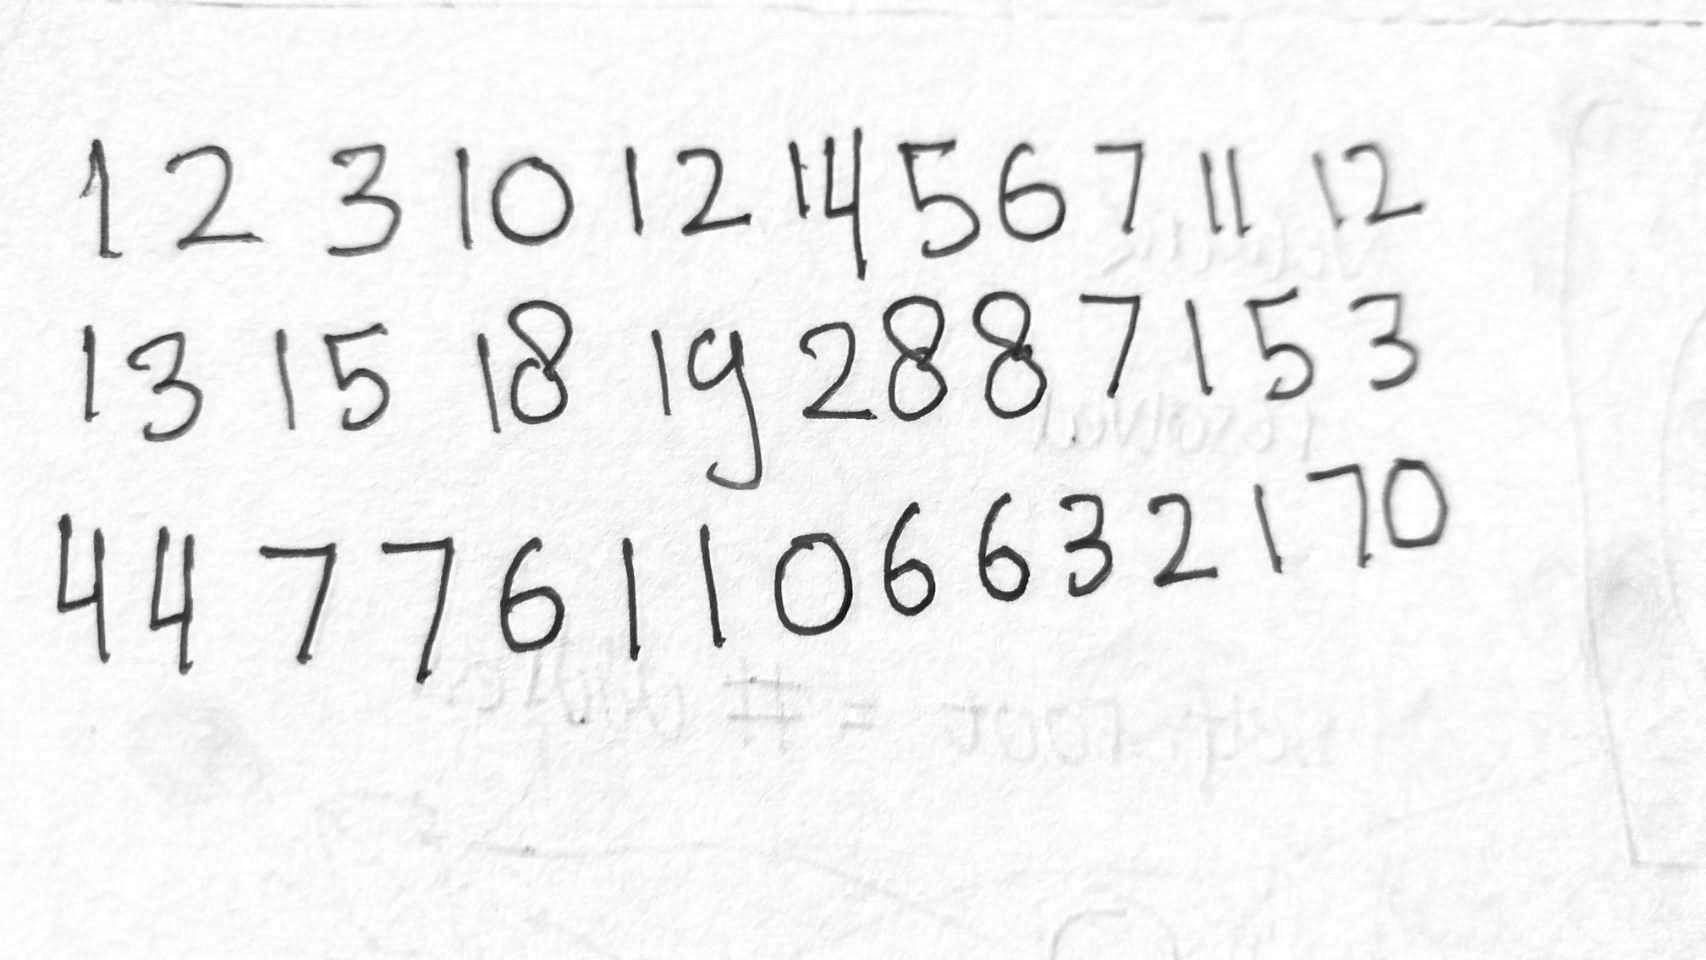 1 2 3 10 12 14 5 6 7 11 12
13 15 18 19 2 8 8 7 1 5 3
4 4 7 7 6 1 1 0 6 6 3 2 1 7 0